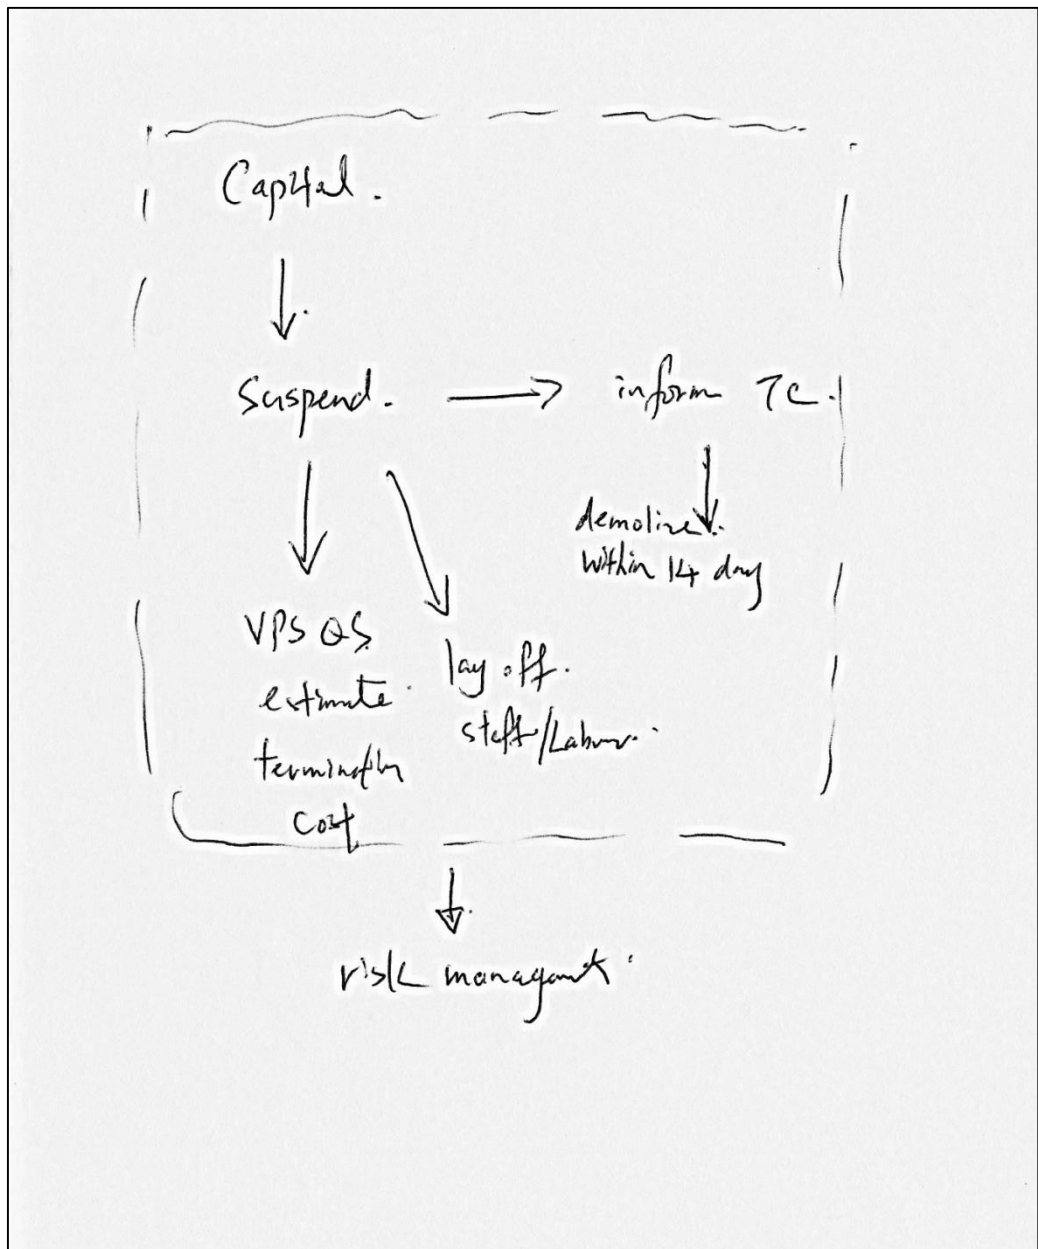 Capital.
Suspend.
inform TC.
demolize
within 14 day
VPS QS
estimate
termination
cost
lay off
staff/Labour.
risk managant.